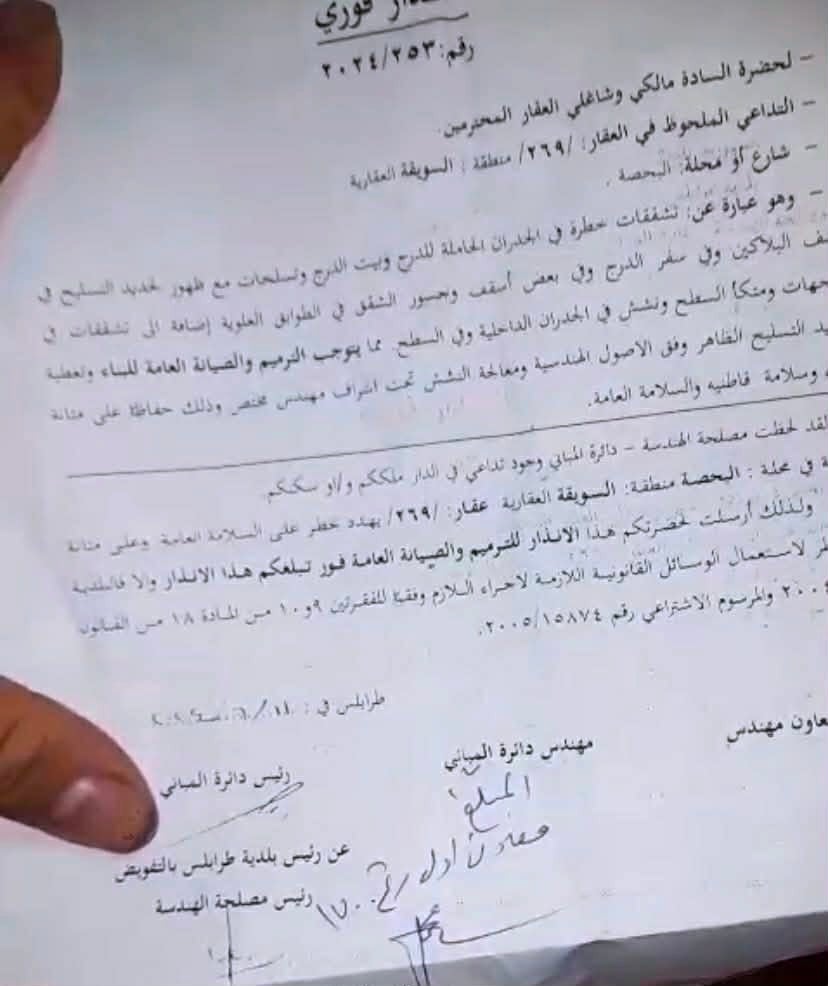 فوري
رقم: ٢٠٢٤/٢٥٣
- لحضرة السادة مالكي وشاغلي العقار المحترمين.
- التداعي الملحوظ في العقار: /٢٦٩/ منطقة : السويقة العقارية
- شارع أو محلة: البحصة .
- وهو عبارة عن: تشققات خطرة في الجدران الحاملة للدرج وبيت الدرج وتسلخات مع ظهور لحديد التسليح في
البلاكين وفي سفر الدرج وفي بعض أسقف وجسور الشقق في الطوابق العلوية إضافة الى تشققات في
ومتكأ السطح ونشش في الجدران الداخلية وفي السطح. مما يتوجب الترميم والصيانة العامة للبناء وتغطية
التسليح الظاهر وفق الاصول الهندسية ومعالجة النشش تحت اشراف مهندس مختص وذلك حفاظا على متانة
وسلامة قاطنيه والسلامة العامة.
لقد لحظت مصلحة الهندسة – دائرة المباني وجود تداعي في الدار ملككم و/او سكنكم
في محلة : البحصة منطقة: السويقة العقارية عقار: /٢٦٩/ يهدد خطر على السلامة العامة وعلى متانة
ولذلك أرسلت لحضرتكم هذا الانذار للترميم والصيانة العامة فور تبلغكم هذا الانذار والا فالبلدية
لاستعمال الوسائل القانونية اللازمة لاجراء اللازم وفقا للفقرتين ٩و١٠ من المادة ١٨ من القانون
والمرسوم الاشتراعي رقم ٢٠٠٥/١٥٨٧٤.
طرابلس في :
مهندس
مهندس دائرة المباني
رئيس دائرة المباني
المبلغ
عن رئيس بلدية طرابلس بالتفويض
رئيس مصلحة الهندسة